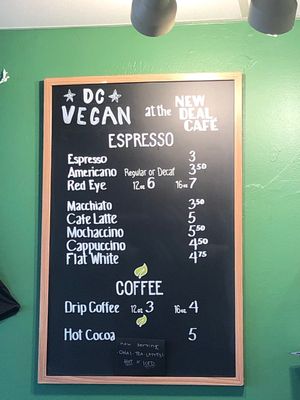 DC
VEGAN at the NEW DEAL CAFÉ
ESPRESSO
Espresso 3
Americano Regular or Decaf 3.50
Red Eye 12oz 6 16oz 7
Macchiato 3.50
Cafe Latte 5
Mochaccino 5.50
Cappuccino 4.50
Flat White 4.75
COFFEE
Drip Coffee 12oz 3 16oz 4
Hot Cocoa 5
now serving
CHAI TEA LATTES!
HOT or ICED